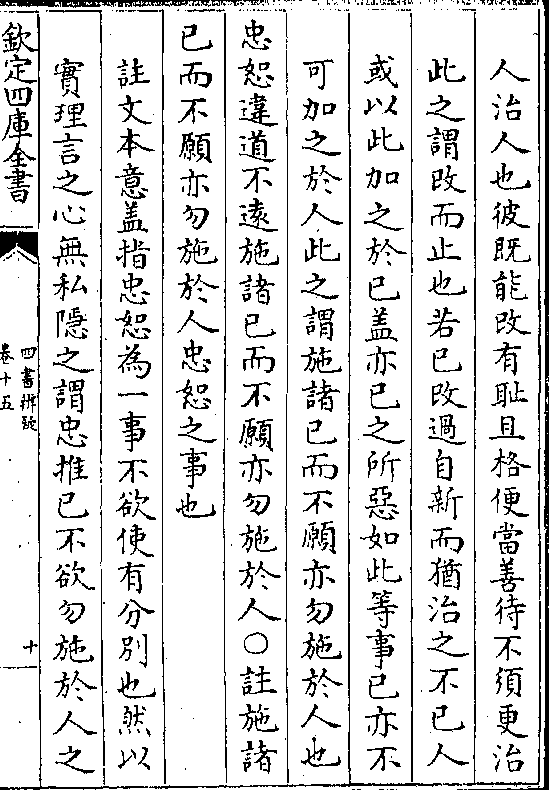 人治人也彼既能改有耻且格便當善待不須更治
此之謂改而止也若已改過自新而猶治之不已人
或以此加之於己盖亦己之所惡如此等事已亦不
可加之於人此之謂施諸己而不願亦勿施於人也
忠恕違道不逺施諸己而不願亦勿施於人○註施諸
己而不願亦勿施於人忠恕之事也
註文本意盖指忠恕為一事不欲使有分別也然以
實理言之心無私隱之謂忠推己不欲勿施於人之
欽定四庫全書
四書辨疑
卷十五
十